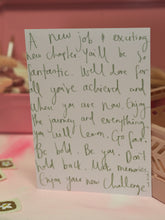 A new job & exciting
new chapter. You'll be so
fantastic. Well done for
all you've achieved and
where you are now. Enjoy
the journey and everything
you will learn. Go far.
Be bold. Be you. Don't
hold back. Make memories.
Enjoy your new challenge!